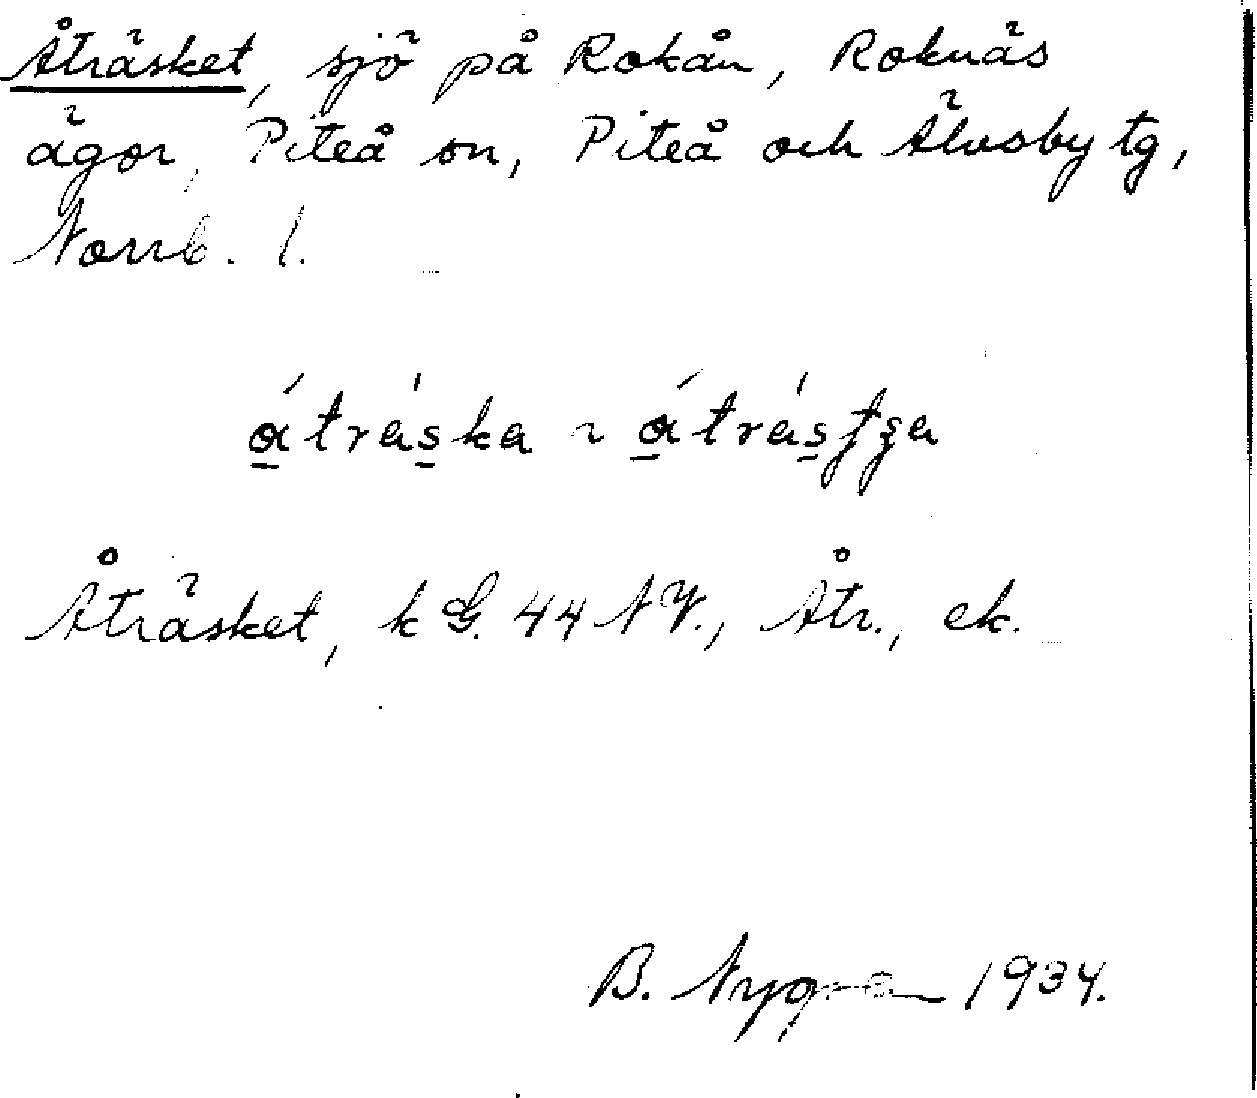 Åträsket, sjö på Rokån, Roknäs
ägor, Piteå sn, Piteå och Älvsby tg,
Norrb. l.
átráska ~ átrást̢ʂa
Åträsket, k G. 44 NV., Åtr., ek.
B. Nygren 1934.